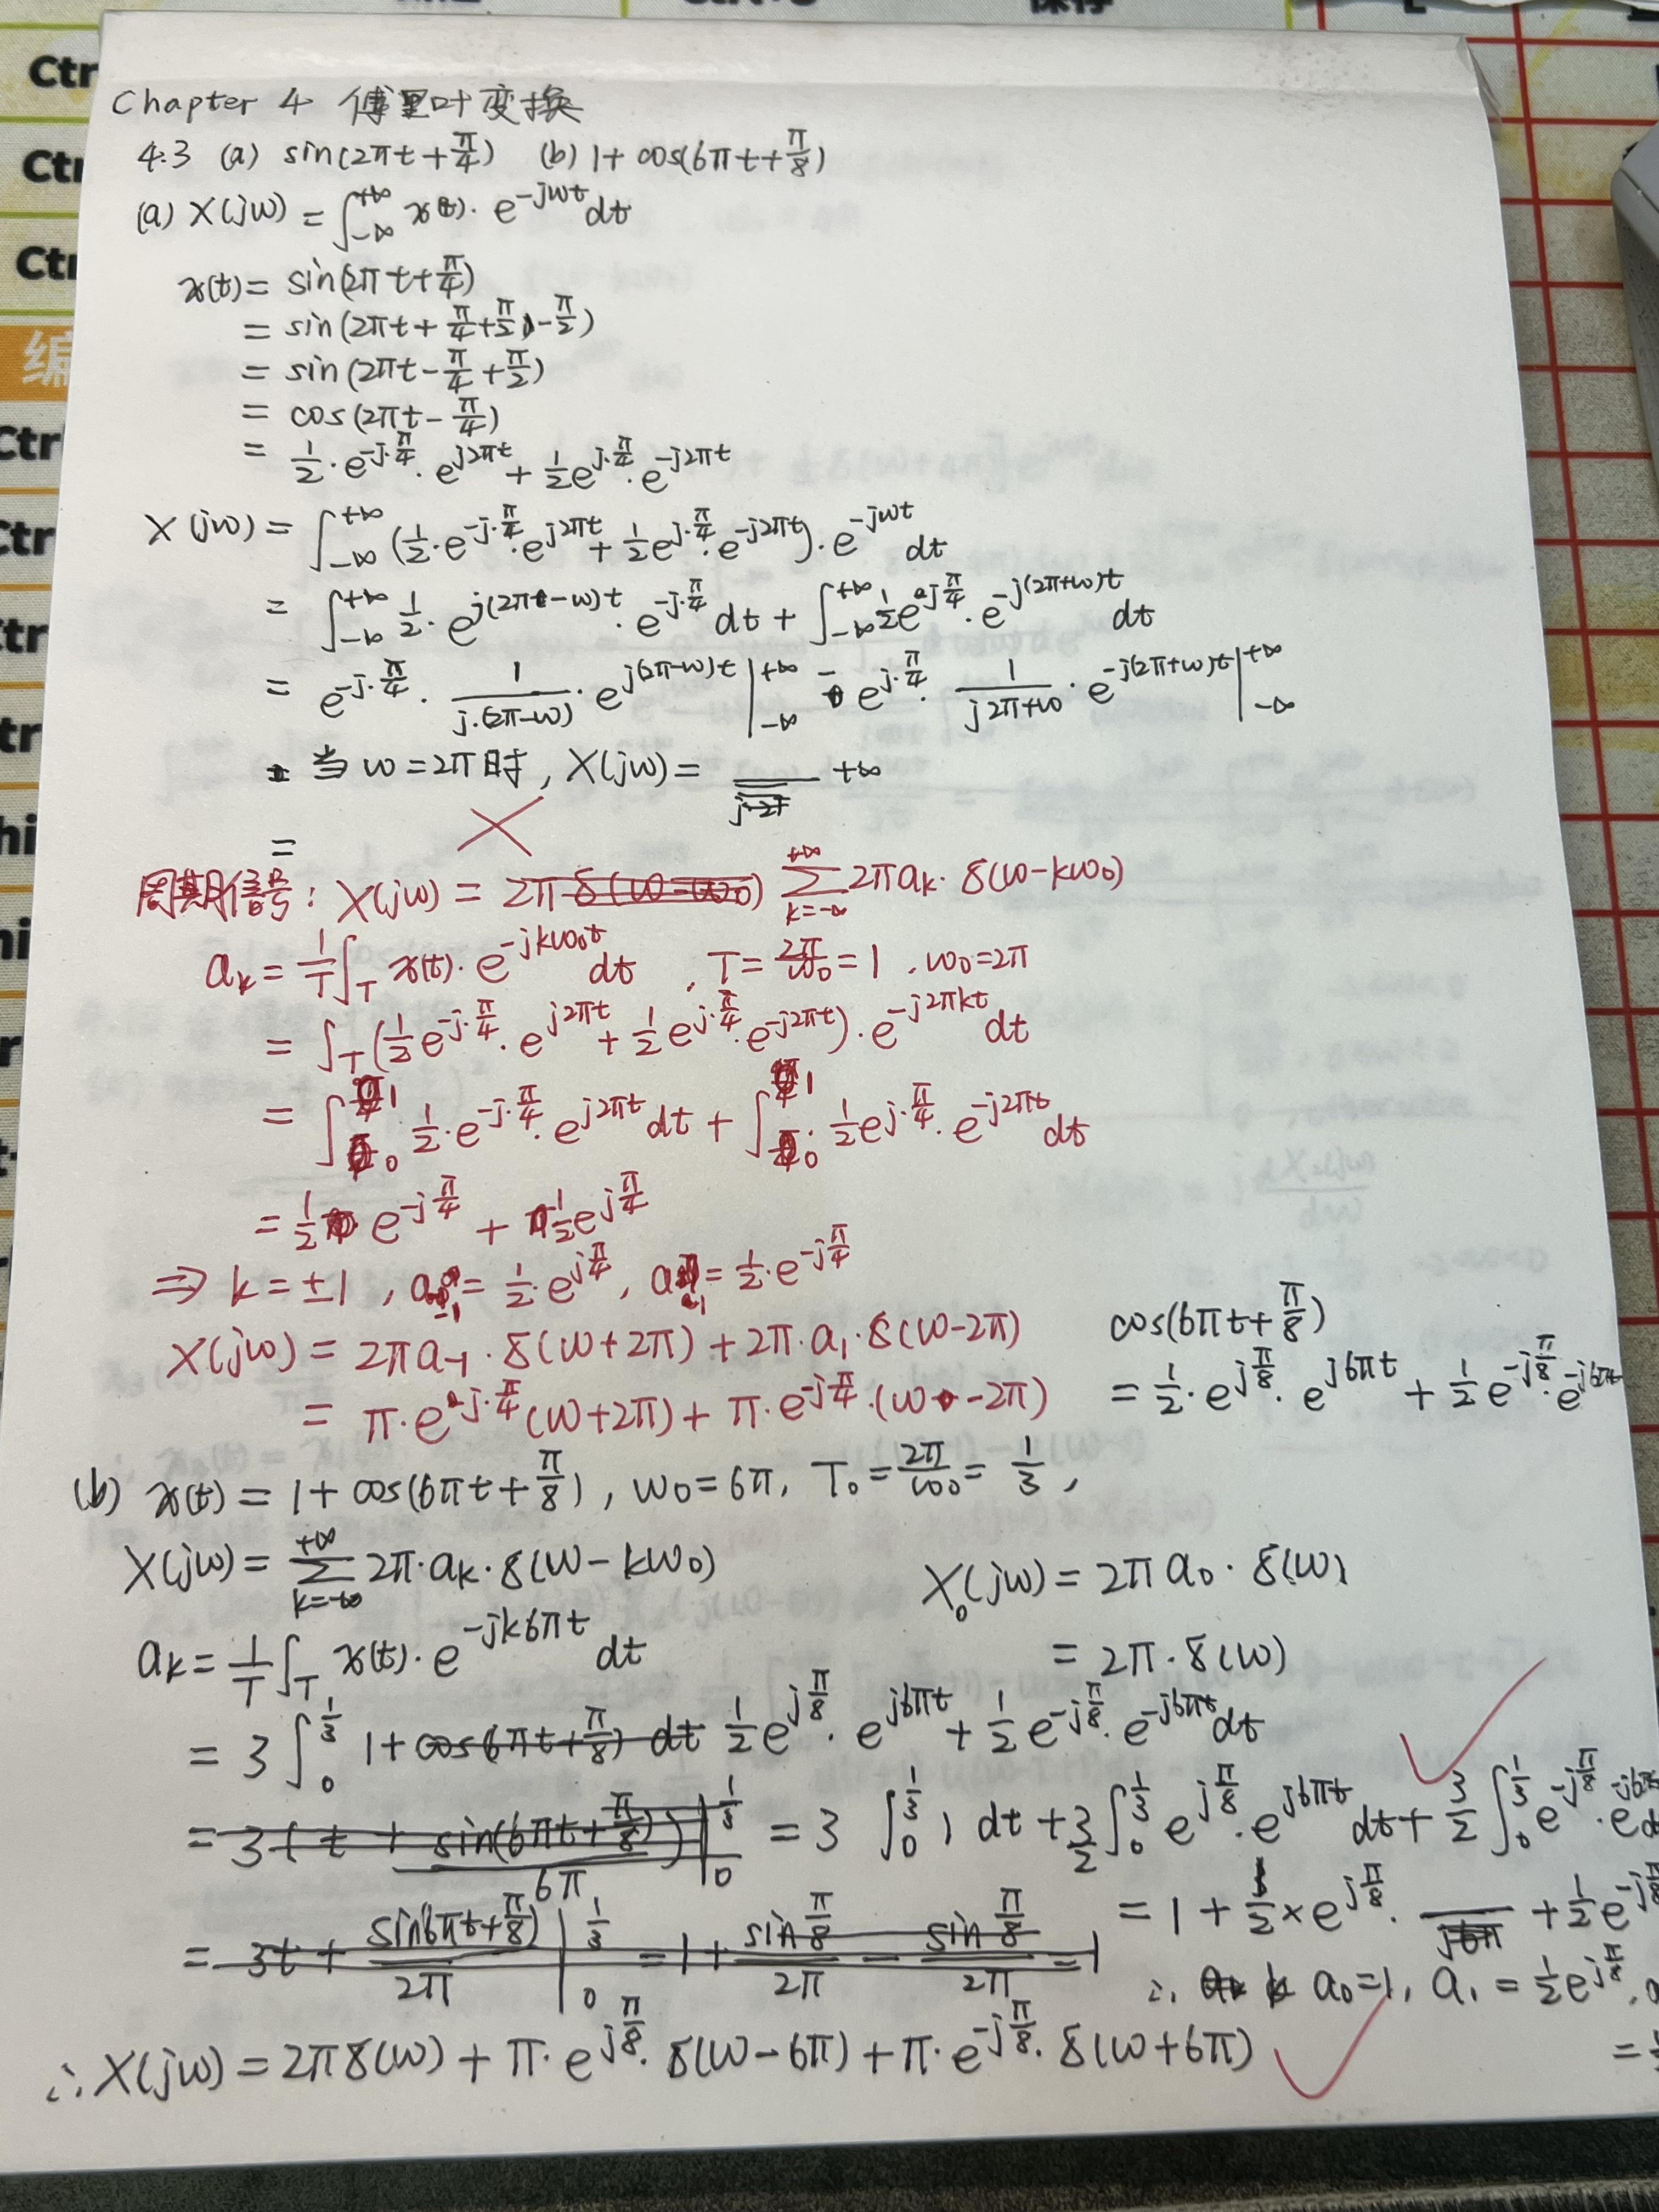 Chapter 4 傅里叶变换
4.3 (a) sin(2πt+π/4) (b) 1+cos(6πt+π/8)
(a) X(jω) = ∫_{-∞}^{+∞} x(t)· e^{-jωt} dt
x(t) = sin(2πt+π/4)
= sin(2πt+π/4+π/2-π/2)
= sin(2πt-π/4+π/2)
= cos(2πt-π/4)
= 1/2·e^{-j·π/4}·e^{j2πt} + 1/2 e^{j·π/4}·e^{-j2πt}
X(jω) = ∫_{-∞}^{+∞} (1/2·e^{-j·π/4}·e^{j2πt} + 1/2 e^{j·π/4}·e^{-j2πt})·e^{-jωt} dt
= ∫_{-∞}^{+∞} 1/2·e^{j(2π-ω)t}·e^{-j·π/4} dt + ∫_{-∞}^{+∞} 1/2 e^{jπ/4}·e^{-j(2π+ω)t} dt
= e^{-j·π/4}· 1/(j·(2π-ω))·e^{j(2π-ω)t} |_{-∞}^{+∞} - e^{j·π/4}· 1/(j2π+ω)·e^{-j(2π+ω)t} |_{-∞}^{+∞}
当 ω=2π时, X(jω) = +∞
=
周期信号: X(jω) = 2π δ(ω-ω0) Σ_{k=-∞}^{+∞} 2πak·δ(ω-kω0)
ak = 1/T ∫_T x(t)·e^{-jkω0t} dt , T = 2π/ω0 = 1 , ω0=2π
= ∫_T (1/2 e^{-j·π/4}·e^{j2πt} + 1/2 e^{j·π/4}·e^{-j2πt})·e^{-j2πkt} dt
= ∫_0^1 1/2·e^{-j·π/4}·e^{j2πt} dt + ∫_0^1 1/2 e^{j·π/4}·e^{-j2πt} dt
= 1/2 e^{-jπ/4} + 1/2 e^{jπ/4}
⇒ k=±1 , a_{-1} = 1/2·e^{jπ/4}, a_1 = 1/2·e^{-jπ/4}
X(jω) = 2πa_{-1}·δ(ω+2π) + 2π·a_1·δ(ω-2π)
= π·e^{j·π/4}(ω+2π) + π·e^{-jπ/4}·(ω-2π)
cos(6πt+π/8)
= 1/2·e^{jπ/8}·e^{j6πt} + 1/2 e^{-jπ/8}·e^{-j6πt}
(b) x(t) = 1+cos(6πt+π/8), ω0=6π, T0 = 2π/ω0 = 1/3,
X(jω) = Σ_{k=-∞}^{+∞} 2π·ak·δ(ω-kω0)
X0(jω) = 2πa0·δ(ω)
= 2π·δ(ω)
ak = 1/T ∫_T x(t)·e^{-jk6πt} dt
= 3∫_0^{1/3} 1+cos(6πt+π/8) dt 1/2 e^{jπ/8}·e^{j6πt} + 1/2 e^{-jπ/8}·e^{-j6πt} dt
= 3(t + sin(6πt+π/8)/6π) |_0^{1/3} = 3∫_0^{1/3} 1 dt + 3/2 ∫_0^{1/3} e^{jπ/8}·e^{j6πt} dt + 3/2 ∫_0^{1/3} e^{-jπ/8}·e^{-j6πt}
= 3t + sin(6πt+π/8)/2π |_0^{1/3} = 1 + sin π/8 /2π - sin π/8 /2π = 1
= 1 + 1/2 × e^{jπ/8}· /j6π + 1/2 e^{-jπ/8}
∴ a0=1, a1 = 1/2 e^{jπ/8},
∴ X(jω) = 2πδ(ω) + π·e^{jπ/8}·δ(ω-6π) + π·e^{-jπ/8}·δ(ω+6π)